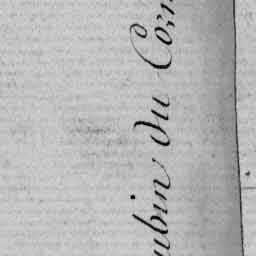 ubin du Com